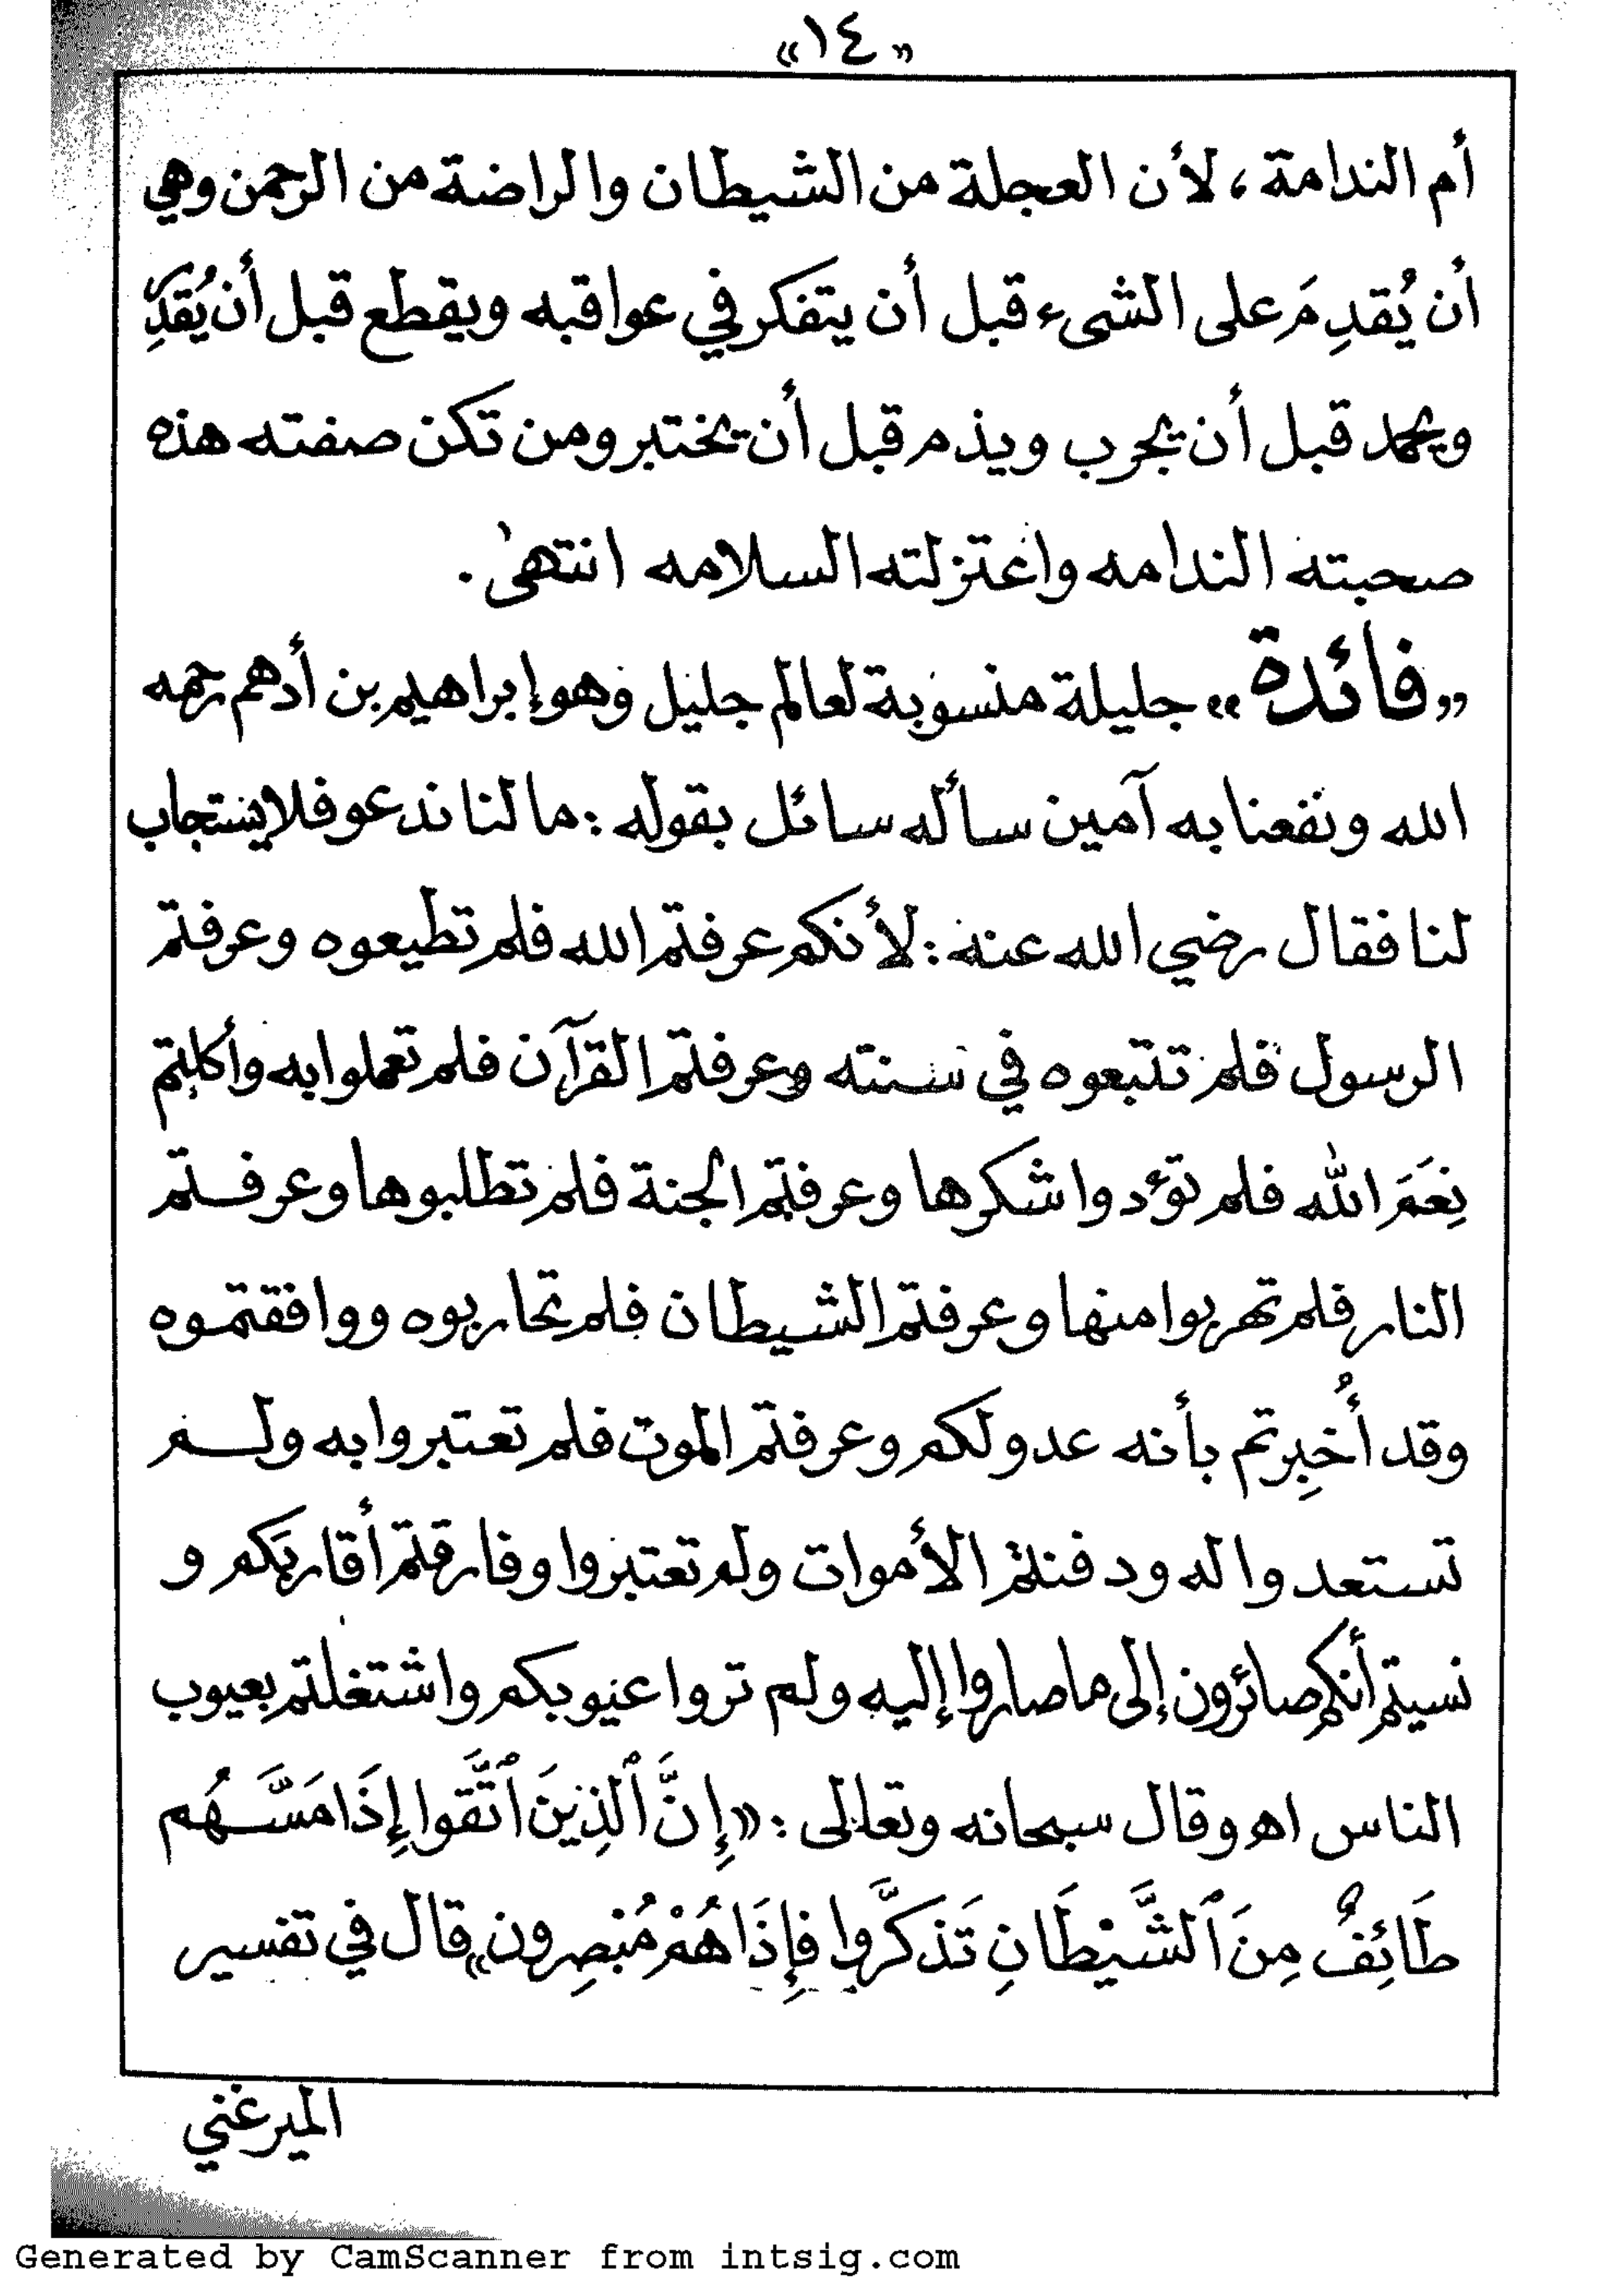 «١٤»
أم الندامة، لأن العجلة من الشيطان والراضة من الرحمن وهي
أن يُقدِمَ على الشيء قبل أن يتفكر في عواقبه ويقطع قبل أن يُقدِّر
ويحمد قبل أن يجرب ويذم قبل أن يختبر ومن تكن صفته هذه
صحبته الندامه واعتزلته السلامه انتهى.
«فائدة» جليلة منسوبة لعالم جليل وهو إبراهيم بن أدهم رحمه
الله ونفعنا به آمين سأله سائل بقوله: ما لنا ندعو فلا يستجاب
لنا فقال رضي الله عنه: لأنكم عرفتم الله فلم تطيعوه وعرفتم
الرسول فلم تتبعوه في سنته وعرفتم القرآن فلم تعملوا به وأكلتم
نِعَمَ الله فلم تؤدوا شكرها وعرفتم الجنة فلم تطلبوها وعرفتم
النار فلم تهربوا منها وعرفتم الشيطان فلم تحاربوه ووافقتموه
وقد أُخبِرتم بأنه عدو لكم وعرفتم الموت فلم تعتبروا به ولم
تستعدوا له ودفنتم الأموات ولم تعتبروا وفارقتم أقاربكم و
نسيتم أنكم صائرون إلى ما صاروا إليه ولم تروا عيوبكم واشتغلتم بعيوب
الناس اهـ وقال سبحانه وتعالى: «إِنَّ ٱلَّذِينَ ٱتَّقَوا إِذَا مَسَّهُم
طَائِفٌ مِنَ ٱلشَّيْطَانِ تَذَكَّرُوا فَإِذَا هُمْ مُبْصِرون» قال في تفسير
الميرغني
Generated by CamScanner from intsig.com